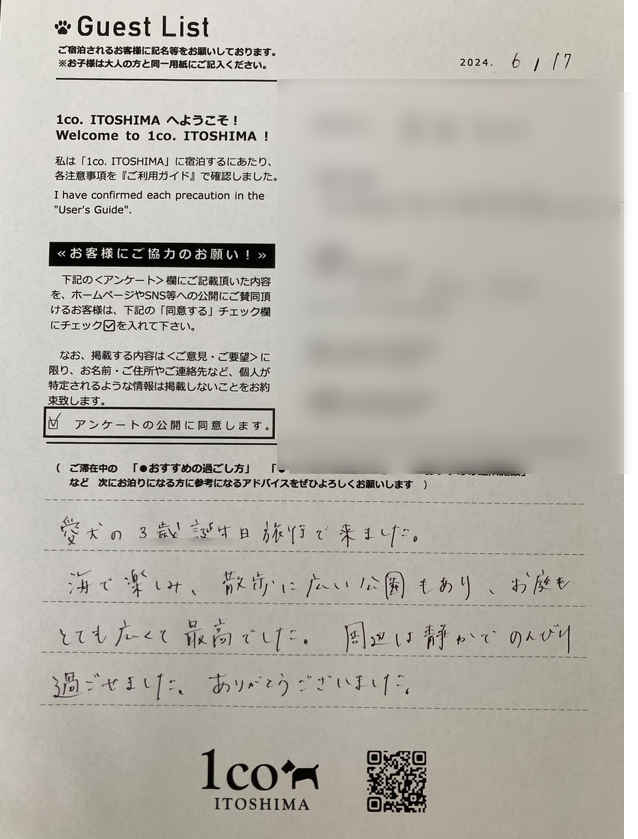 Guest List
ご宿泊されるお客様に記名等をお願いしております。
※お子様は大人の方と同一用紙にご記入ください。
2024. 6 / 17
1co. ITOSHIMA へようこそ！
Welcome to 1co. ITOSHIMA !
私は「1co. ITOSHIMA」に宿泊するにあたり、
各注意事項を『ご利用ガイド』で確認しました。
I have confirmed each precaution in the
"User's Guide".
≪お客様にご協力のお願い！≫
下記の＜アンケート＞欄にご記載頂いた内容
を、ホームページやSNS等への公開にご賛同頂
けるお客様は、下記の「同意する」チェック欄
にチェック☑を入れて下さい。
なお、掲載する内容は＜ご意見・ご要望＞に
限り、お名前・ご住所やご連絡先など、個人が
特定されるような情報は掲載しないことをお約
束致します。
☑ アンケートの公開に同意します。
（ ご滞在中の 「●おすすめの過ごし方」 「●
など 次にお泊りになる方に参考になるアドバイスをぜひよろしくお願いします ）
愛犬の3歳誕生日旅行で来ました。
海で楽しみ、散歩に広い公園もあり、お庭も
とても広くて最高でした。周辺は静かでのんびり
過ごせました。ありがとうございました。
1co
ITOSHIMA